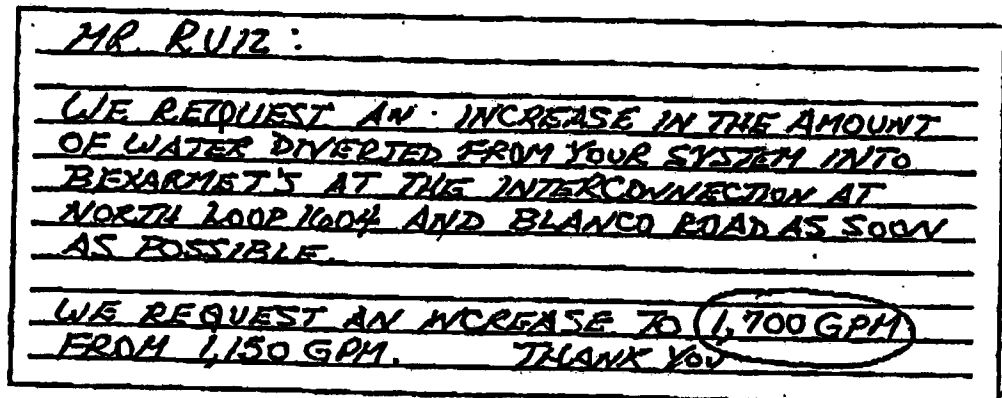 MR. RUIZ:
WE REQUEST AN INCREASE IN THE AMOUNT
OF WATER DIVERTED FROM YOUR SYSTEM INTO
BEXARMET'S AT THE INTERCONNECTION AT
NORTH LOOP 1604 AND BLANCO ROAD AS SOON
AS POSSIBLE.
WE REQUEST AN INCREASE TO 1,700 GPM
FROM 1,150 GPM. THANK YOU